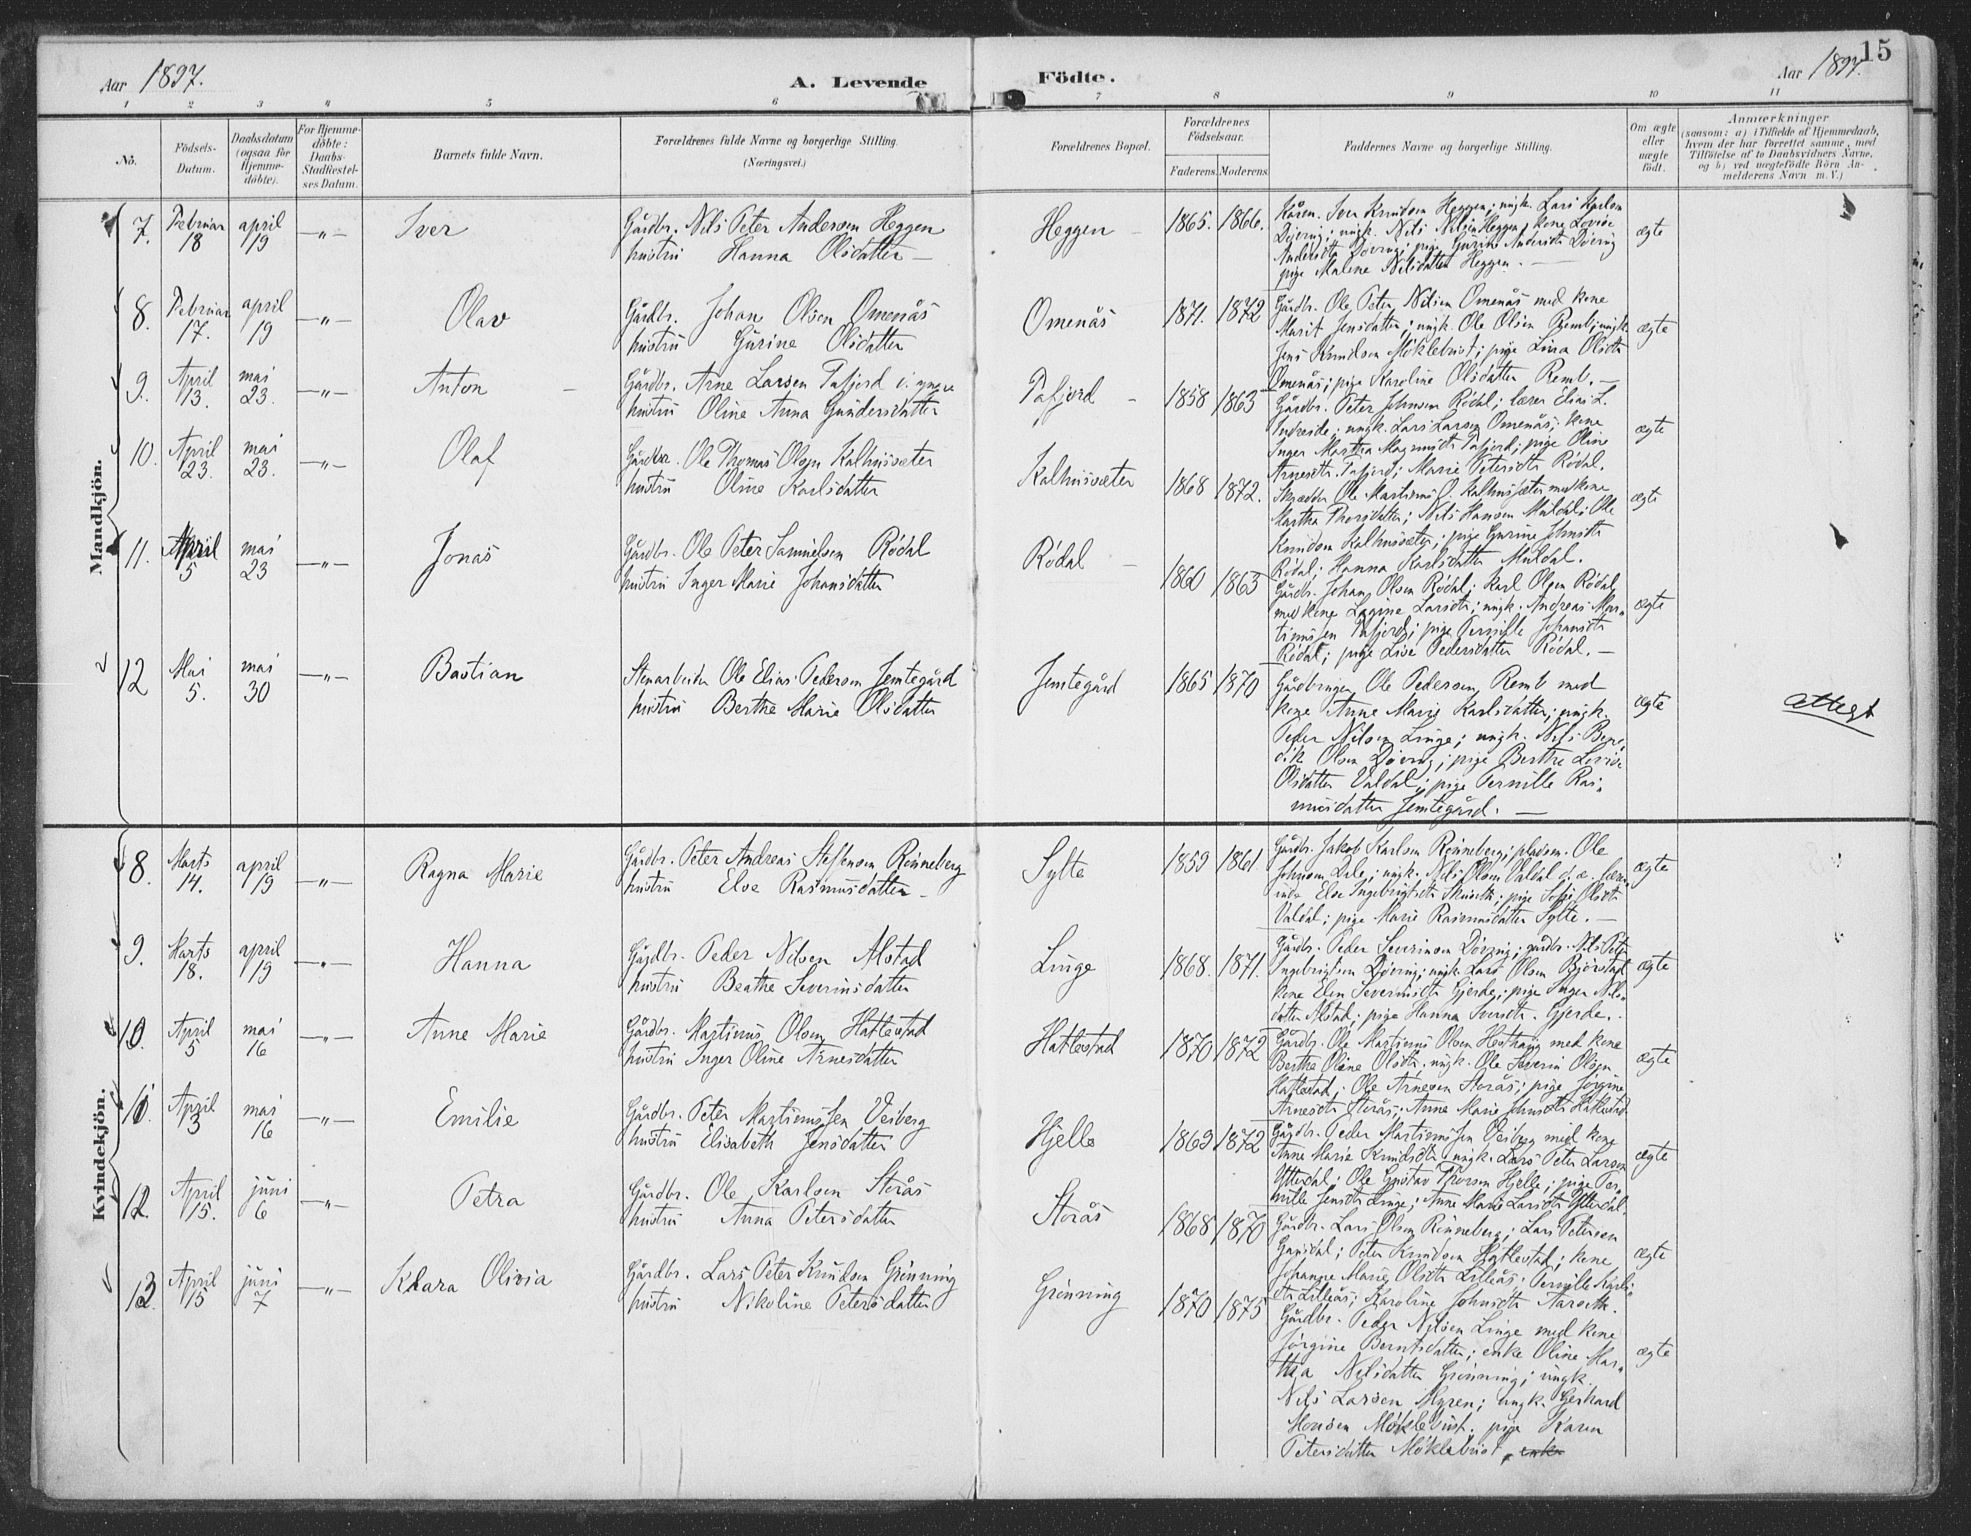 15
Aar 1897.
A. Levende Födte.
Aar 1897.
1 2 3 4 5 6 7 8 9 10 11
No.
Födsels-Datum.
Daabsdatum (ogsaa for Hjemme-döbte).
For Hjemme-döbte: Daabs-Stadfæstel-ses Datum.
Barnets fulde Navn.
Forældrenes fulde Navne og borgerlige Stilling. (Næringsvei.)
Forældrenes Bopæl.
Forældrenes Födselsaar.
Faderens. Moderens.
Faddernes Navne og borgerlige Stilling.
Om ægte eller uægte födt.
Anmærkninger
(saasom: a) i Tilfælde af Hjemmedaab,
hvem der har forrettet samme, med
Tilföielse af to Daabsvidners Navne,
og b) ved uægtefödte Börn An-
melderens Navn m. V.)
Mandkjön.
7. Februar 18 april 19 —"— Iver
Gårdbr. Nils Peter Andersen Heggen
hustru Hanna Olsdatter —
Heggen — 1865. 1866.
Iver Knudsen Heggen; ungk. Lars Karlsen
Døving; ungk. Nils Nilsen Heggen; kone Lovise
Andersdt. Døving; pige Gurine Andersdt. Døving
pige Malene Nilsdatter Heggen. —
ægte
8. Februar 17. april 19 —"— Olav
Gårdbr. Johan Olsen Omenås
hustru Gurine Olsdatter
Omenås 1871. 1872
Gårdbr. Ole Peter Nilsen Omenås med kone
Marit Jensdatter; ungk. Ole Olsen Remb; ungk.
Jens Knudsen Møklebust; pige Lina Olsdtr
Omenås; pige Karoline Olsdatter Remb. —
ægte
9. April 13. mai 23. —"— Anton —
Gårdbr. Arne Larsen Tafjord i. yngre
hustru Oline Anna Gundersdatter
Tafjord — 1858 1863
Gårdbr. Peter Johnsen Rödal; lærer Elias L.
Indreide; ungk. Lars Larsen Omenås; kone
Inger Martha Magnusdtr Tafjord; pige Oline
Arnesdtr. Tafjord; Marie Petersdtr Rödal.
ægte
10. April 23. mai 23. —"— Olaf
Gårdbr. Ole Thomas Olsen Kalhussæter
hustru Oline Karlsdatter
Kalhussæter 1868 1872.
Ole Martinus O. Kalhussæter med kone
Martha Thorsdatter; Nils Hansen Muldal; Ole
Knudsen Kalhussæter; pige Gurine Johnsdtr
Rödal; Hanna Karlsdatter Muldal.
ægte
11. April 5 mai 23 —"— Jonas
Gårdbr. Ole Peter Samuelsen Rödal
hustru Inger Marie Johansdatter
Rödal — 1860 1863
Gårdbr. Johan Olsen Rödal; Karl Olsen Rödal
med kone Lagine Larsdtr; ungk. Andreas Mar-
tinussen Tafjord; pige Pernille Johansdtr
Rödal; pige Lise Pedersdatter Rödal. —
ægte
12 Mai 5. mai 30 —"— Bastian
Stenarbeider Ole Elias Pedersen Jemtegård
hustru Berthe Marie Olsdatter
Jemtegård 1865 1870
Gårdbruger Ole Pedersen Remb med
kone Anne Marie Karlsdatter; ungk.
Peder Nilsen Linge; ungk. Nils Bene-
dik Olsen Døving; pige Berthe Lovise
Olsdatter Valdal; pige Pernille Ras-
musdatter Jemtegård. —
ægte
attest
Kvindekjön.
8. Marts 14. april 19 —"— Ragna Marie
Gårdbr. Peter Andreas Steffensen Rønneberg
hustru Else Rasmusdatter —
Sylte 1859 1861
Gårdbr. Jakob Karlsen Rønneberg; pladsm. Ole
Johnsen Dale; ungk. Nils Olsen Valdal d. æ. lærer-
inde Else Ingebrigtsdtr; pige Sofie Olsdtr
Valdal; pige Marie Rasmusdatter Sylte. —
ægte
9. Marts 18. april 19 —"— Hanna
Gårdbr. Peder Nilsen Alstad
hustru Beathe Severinsdatter
Linge 1868. 1871.
Gårdbr. Peder Severinsen Døving; gårdbr. Nils Peter
Ingebrigtsen Døving; ungk. Lars Olsen Bjørstad
kone Elen Severinsdtr Gjerde; pige Inger Nils-
datter Alstad; pige Hanna Iversdtr. Gjerde.
ægte
10. April 5 mai 16 —"— Anne Marie
Gårdbr. Martinus Olsen Hatlestad
hustru Inger Oline Arnesdatter
Hatlestad 1870 1872
Gårdbr. Ole Martinus Olsen med kone
Berthe Oline Olsdtr; ungk. Ole Severin Olsen
Hatlestad; Ole Arnesen Storås; pige Jørgine
Arnesdtr Storås; Anne Marie Johnsdtr Hatlestad
ægte
11. April 3 mai 16 —"— Emilie
Gårdbr. Peter Martinussen Veiberg
hustru Elisabeth Jensdatter
Hjelle 1869 1872
Gårdbr. Peder Martinussen Veiberg med kone
Anne Marie Knudsdtr; ungk. Lars Peter Larsen
Ytterdal; Ole Gustav Thorsen Hjelle; pige Per-
nille Jensdtr Linge; Anne Marie Larsdtr Ytterdal
ægte
12. April 15. juni 6 —"— Petra
Gårdbr. Ole Karlsen Storås
hustru Anna Petersdatter
Storås 1868 1870
Gårdbr. Lars Olsen Rønneberg; Lars Petersen
Peter Knudsen Hatlestad; kone
Johanne Marie Olsdtr Lilleås; Pernille Karls-
dtr Lilleås; Karoline Johnsdtr
ægte
13. April 15 juni 7 —"— Klara Olivia
Gårdbr. Lars Peter Knudsen Grønning
hustru Nikoline Petersdatter
Grønning 1870 1875
Gårdbr. Peder Nilsen Linge med kone
Jørgine Berntsdatter; enke Oline Mar-
tha Nilsdatter Grønning; ungk.
Nils Larsen Myren; ungk. Gerhard
Hansen Møklebust; pige Karen
Petersdatter Møklebust, enke
ægte